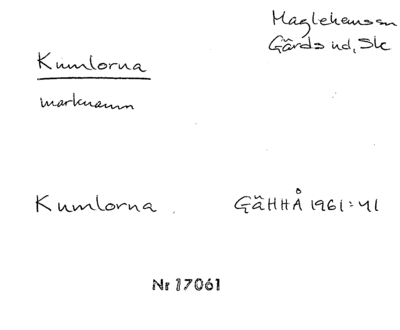 Maglehems sn
Gärds hd, Sk
Kumlorna
marknamn
Kumlorna. GäHHÅ 1961:41
Nr 17061